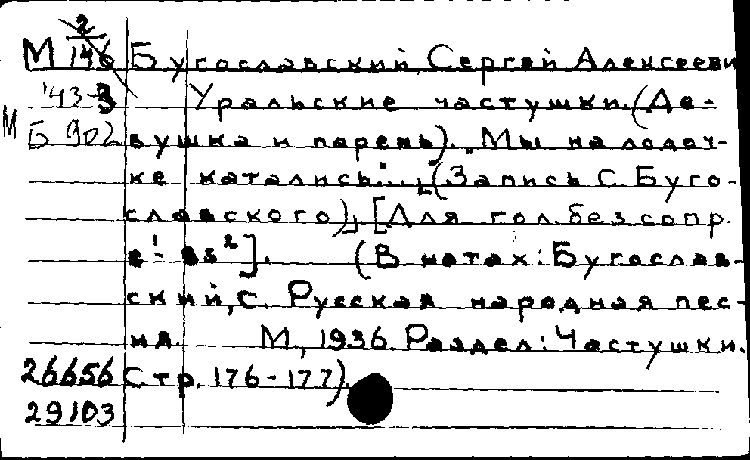 2
М 146 Бугославский, Сергей Алексееви
'43-3 Уральские частушки. (Де-
М Б 902 вушка и парень). „Мы на лодоч-
ке катались"... [(Запись С. Буго-
славского)], [Для гол. без сопр.
е¹- as²]. (В нотах: Бугослав-
ский, С. Русская народная пес-
ня. М., 1936. Раздел: Частушки.
26656 Стр. 176-177).
29103